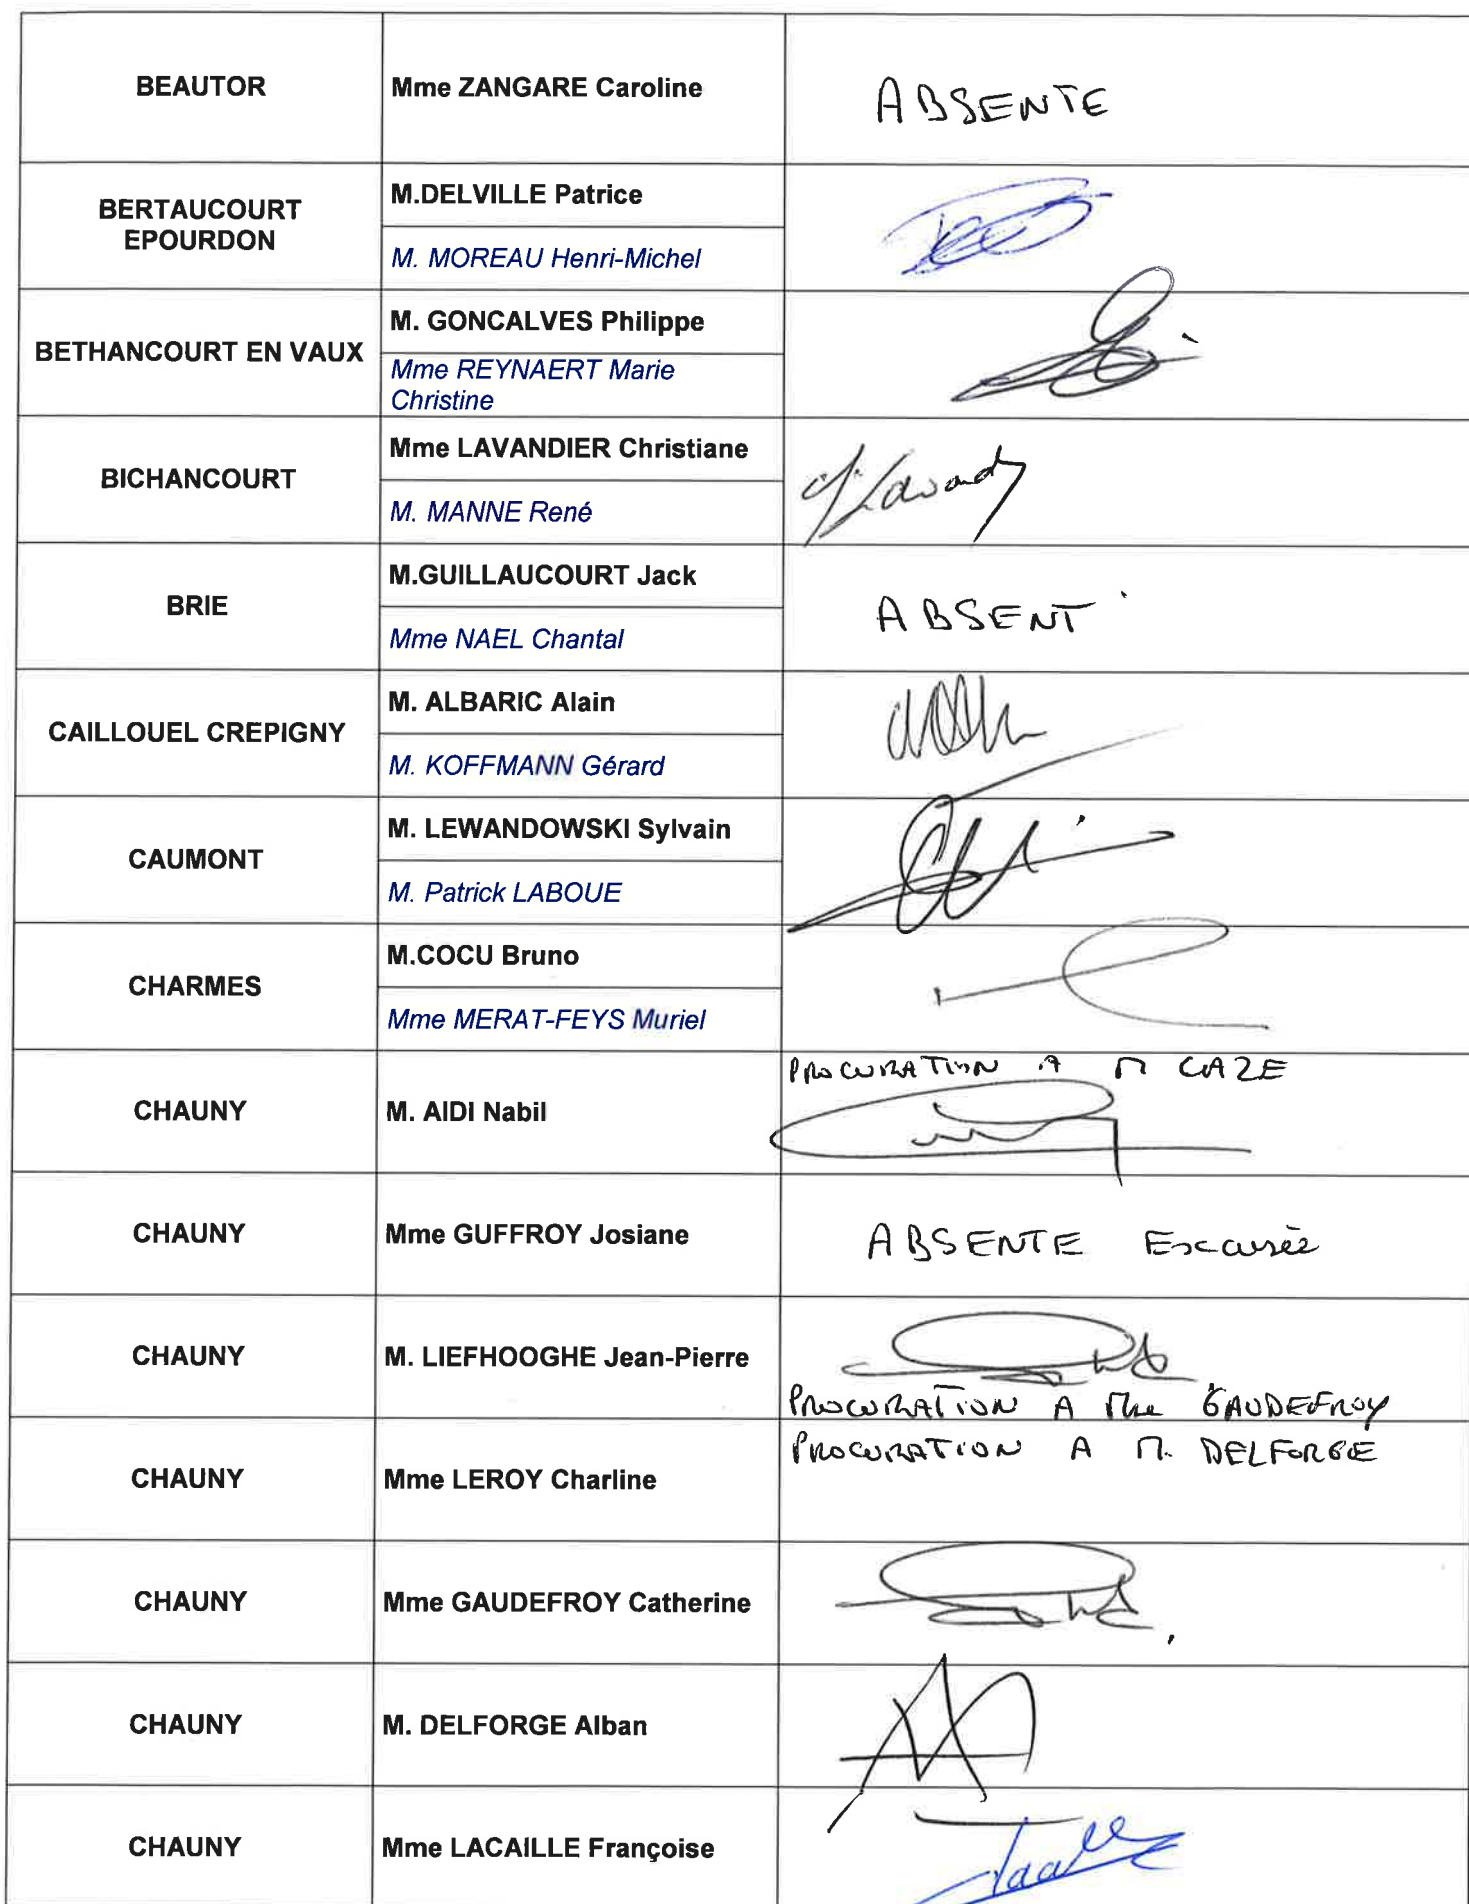 BEAUTOR
Mme ZANGARE Caroline
ABSENTE
BERTAUCOURT
EPOURDON
M.DELVILLE Patrice
M. MOREAU Henri-Michel
BETHANCOURT EN VAUX
M. GONCALVES Philippe
Mme REYNAERT Marie
Christine
BICHANCOURT
Mme LAVANDIER Christiane
M. MANNE René
BRIE
M.GUILLAUCOURT Jack
Mme NAEL Chantal
ABSENT
CAILLOUEL CREPIGNY
M. ALBARIC Alain
M. KOFFMANN Gérard
CAUMONT
M. LEWANDOWSKI Sylvain
M. Patrick LABOUE
CHARMES
M.COCU Bruno
Mme MERAT-FEYS Muriel
CHAUNY
M. AIDI Nabil
PROCURATION A M CAZE
CHAUNY
Mme GUFFROY Josiane
ABSENTE Excusée
CHAUNY
M. LIEFHOOGHE Jean-Pierre
PROCURATION A Mme GAUDEFROY
CHAUNY
Mme LEROY Charline
PROCURATION A M. DELFORGE
CHAUNY
Mme GAUDEFROY Catherine
CHAUNY
M. DELFORGE Alban
CHAUNY
Mme LACAILLE Françoise